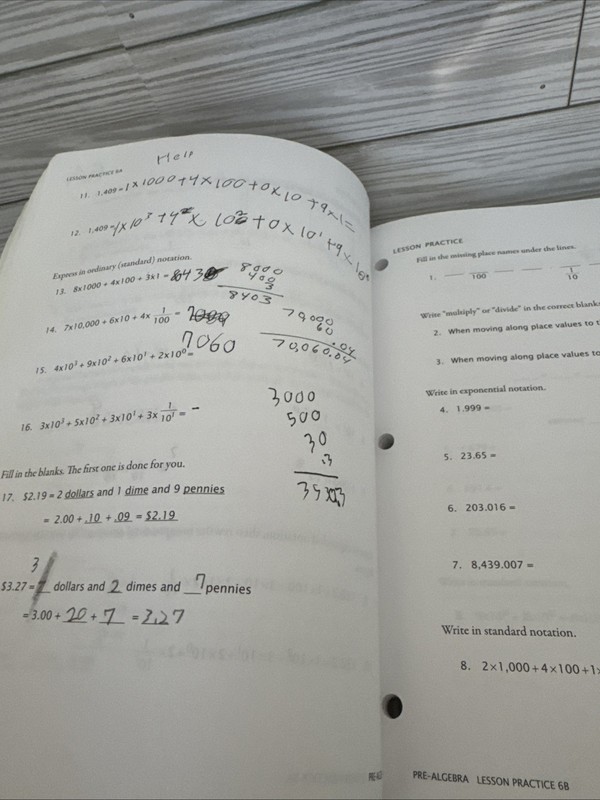 Help
LESSON PRACTICE 6A
11. 1,409 = 1×1000+4×100+0×10+9×1=
12. 1,409 = 1×10³+4×10²+0×10¹+9×
Express in ordinary (standard) notation.
13. 8×1000 + 4×100 + 3×1 =
8000
400
3
8403
14. 7×10,000 + 6×10 + 4× 1/100 =
7060
60
.04
70,060.04
15. 4×10³ + 9×10² + 6×10¹ + 2×10⁰ =
16. 3×10³ + 5×10² + 3×10¹ + 3× 1/10¹ = -
3000
500
30
.3
Fill in the blanks. The first one is done for you.
17. $2.19 = 2 dollars and 1 dime and 9 pennies
= 2.00 + .10 + .09 = $2.19
3
$3.27 = dollars and 2 dimes and 7 pennies
= 3.00 + 20 + 7 = 3.27
LESSON PRACTICE
Fill in the missing place names under the lines.
1. 1/100 1/10
Write "multiply" or "divide" in the correct
2. When moving along place values to
3. When moving along place values to
Write in exponential notation.
4. 1.999 =
5. 23.65 =
6. 203.016 =
7. 8,439.007 =
Write in standard notation.
8. 2×1,000+4×100+1
PRE-ALGEBRA LESSON PRACTICE 6B